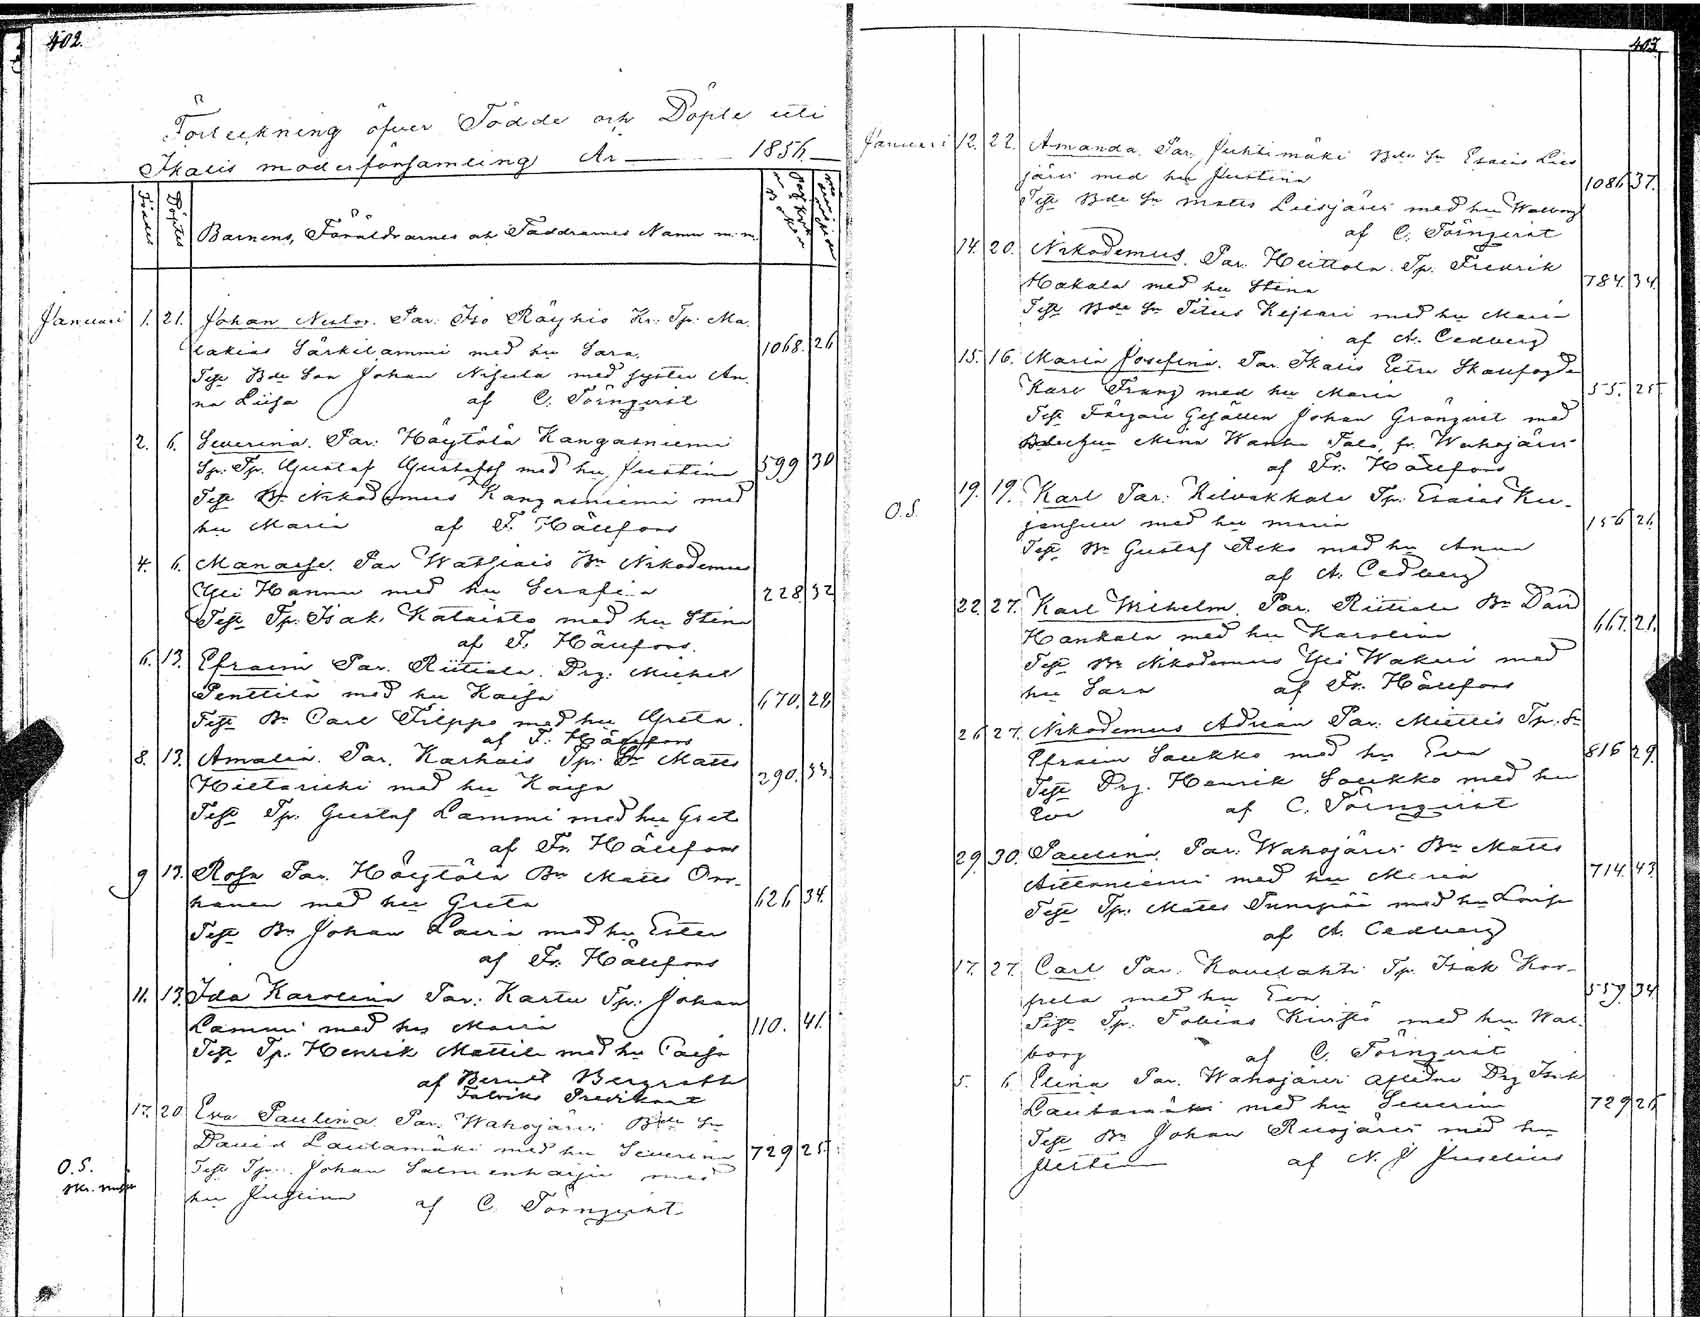 402.
Förteckning öfver Födde och Döpte uti
Ikalis moderförsamling År 1856.
Födde Döpte Barnens, Föräldrarnes och Faddrarnes Namn m.m.
Januari 1. 21. Johan Nestor. Par: Iso Röyhiö Kr: Tp: Ma-
lakias Särkilammi med hu Sara. 1068. 26
Test Bde Son Johan Nisula med syster An-
na Liisa af C. Törnqvist
2. 6. Severina. Par: Höytölä Kangasniemi
Sp. Tp. Gustaf Gustafss med hu Justina 599 30
Test Bn Nikodemus Kangasniemi med
hu Maria af F. Hällfors
4. 6. Manasse. Par Watsiais Bn Nikodemus
Yli Hannu med hu Serafina 228. 32
Test Tp: Isak Kataisto med hu Stina
af F. Hällfors.
6. 13. Efraim Par. Riitiala. Drg: Michel
Penttilä med hu Kaisa 670. 28
Test Bn Carl Filppo med hu Greta.
af F. Hällfors
8. 13. Amalia. Par. Karhois Tp: Sn Matts
Hietarichi med hu Kaisa 290. 33.
Test Tp: Gustaf Lammi med hu Greta
af Fr. Hällfors
9 13. Rosa Par. Höytölä Bn Matts Oro-
hanen med hu Greta 626 34.
Test Bn Johan Lauri med hu Ester
af Fr. Hällfors
11. 13. Ida Karolina Par: Kartu Tp: Johan
Lammi med hu Maria 110. 41.
Test Tp. Henrik Mattila med hu Caisa
af Bernd Bergroth
Fabriks Predikant
17. 20 Eva Paulina Par: Wahojärvi Bde Sn
David Lautamäki med hu Severina 729 25.
O.S. Test Tp: Johan Salmenharju med
hu Justina af C. Törnqvist
403.
Januari 12. 22. Amanda. Par. Juhtimäki Bde Sn Esaias Lies
järvi med hu Justina 1086 37.
Test Bde Sn Matts Liesjärvi med hu Walborg
af C. Törnqvist
14. 20. Nikodemus. Par. Heittola. Tp. Fredrik
Hakala med hu Stina 784. 34.
Test Bde Sn Titus Kejsari med hu Maria
af A. Cedberg
15. 16. Maria Josefina. Par. Ikalis Extra Skallfogde
Karl Franz med hu Maria 55. 25.
Test Färgare Gesällen Johan Grönqvist med
Mina Wanha Talo, fr. Wahojärvi
af Fr. Hällfors
O.S. 19. 19. Karl Par: Kilvakkala Tp: Esaias Ku-
janpuu med hu Maria 156 26.
Test Bn Gustaf Reko med hu Anna
af A. Cedberg
22. 27. Karl Wilhelm. Par. Riitiala Bn David
Hankala med hu Karolina 667. 21.
Test Bn Nikodemus Yli Wakeri med
hu Sara af Fr. Hällfors
26 27. Nikodemus Adrian Par: Miettis Tp: Sn
Efraim Soukko med hu Eva 816 29.
Test Drg. Henrik Soukko med hu
Eva af C. Törnqvist
29. 30. Paulina. Par: Wahojärvi Bn Matts
Aittoniemi med hu Maria 714. 43.
Test Tp: Matts med hu Lovisa
af A. Cedberg
17. 27. Carl Par: Kovelahti Tp. Isak Kor-
pela med hu Eva 559. 34.
Test Tp. Tobias med hu Wal-
borg af C. Törnqvist
5. 6 Elina Par. Wahojärvi aflidne Drg Isak
Lautamäki med hu Severina 729 26.
Test Bn Johan Ruojärvi med hu
Justina af N. J Juselius